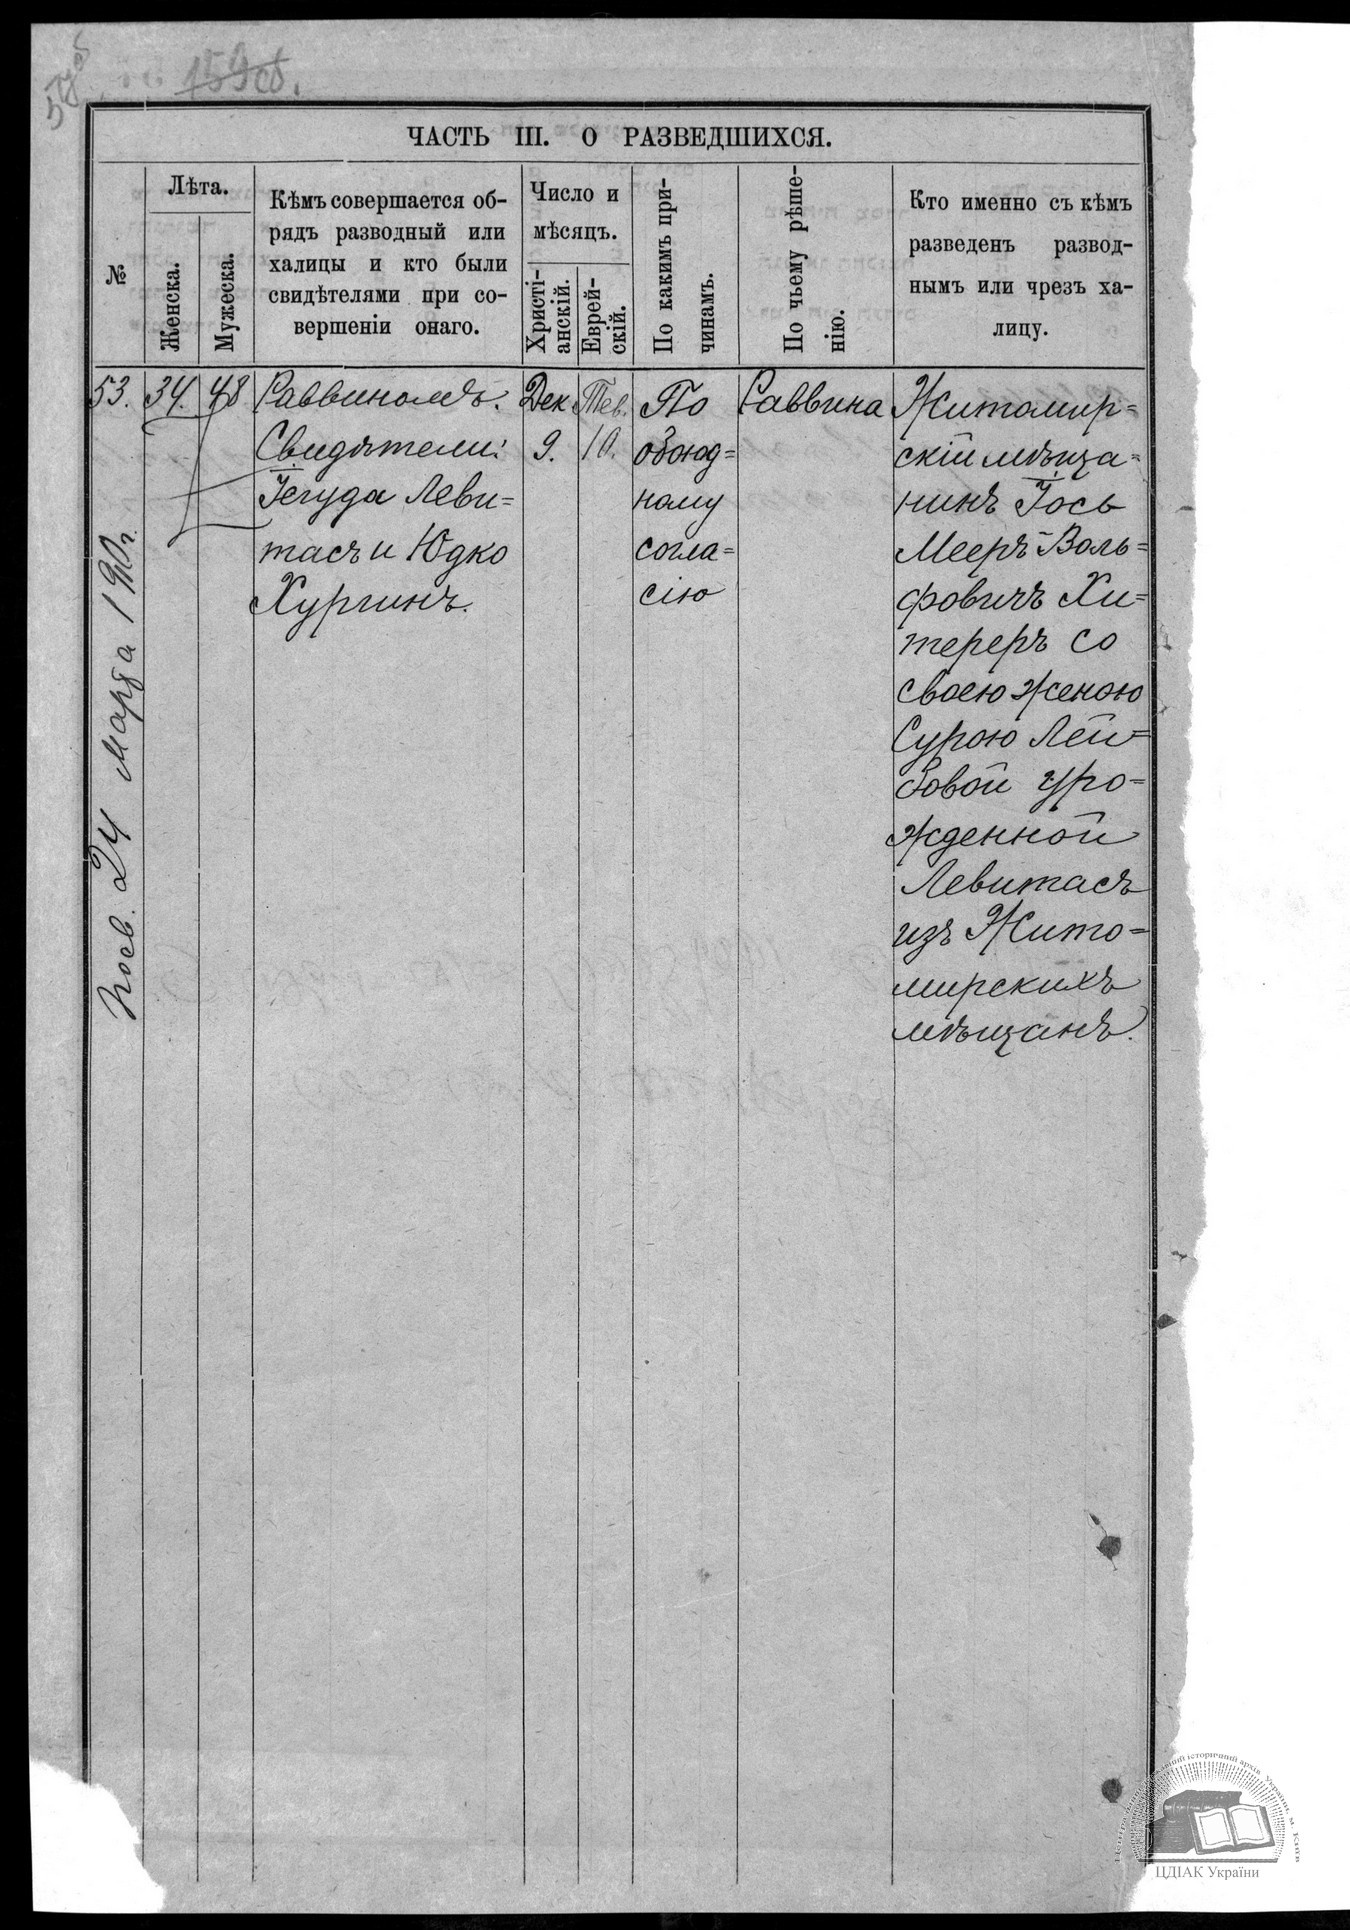 159об.
ЧАСТЬ III. О РАЗВЕДШИХСЯ.
№
Лѣта.
Женска.
Мужеска.
Кѣмъ совершается об-
рядъ разводный или
халицы и кто были
свидѣтелями при со-
вершеніи онаго.
Число и
мѣсяцъ.
Христі-
анскій.
Еврей-
скій.
По какимъ при-
чинамъ.
По чьему рѣше-
нію.
Кто именно съ кѣмъ
разведенъ развод-
нымъ или чрезъ ха-
лицу.
53.
34.
48
Раввиномъ.
Свидѣтели:
Іегуда Леви=
тасъ и Юдко
Хургинъ.
Дек
9.
Тев.
10.
По
обоюд=
ному
согла=
сію
Раввина
Житомир=
скій мѣща=
нинъ Іось
Мееръ Воль=
фовичъ Хи=
тереръ со
своею женою
Сурою Лей=
зовой уро=
жденной
Левитасъ
изъ Жито=
мирскихъ
мѣщанъ.
24 Марта 1910 г.
ЦДІАК України